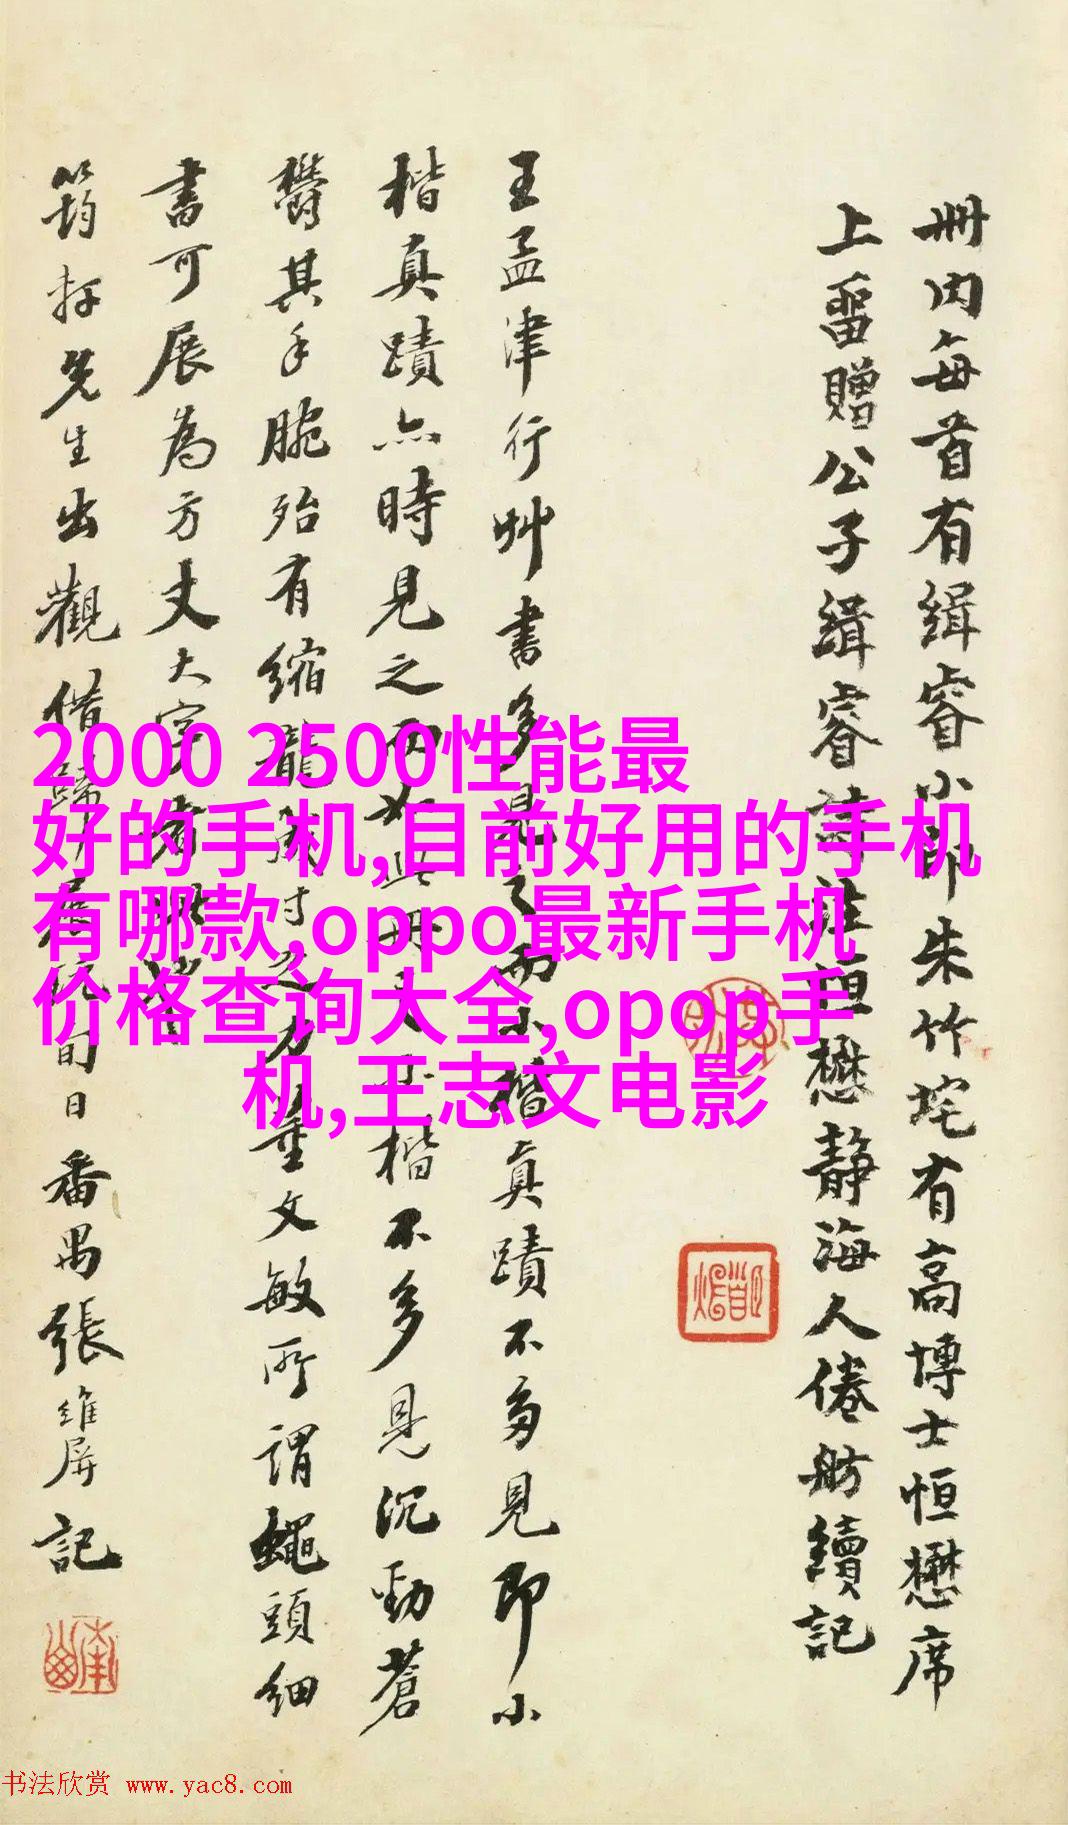 冊内每首有緝睿小印朱竹垞有高博士恒懋席
上畱贈公子緝睿詩註恒懋靜海人倦舫續記
王孟津行艸書多見之而小楷真蹟不多見即小
楷真蹟亦時見之而如此冊之小楷不多見沉勁蒼
鬱其手腕殆有縮龍成寸之力董文敏所謂蠅頭細
書可展為方丈大字者
筠 先生出觀借歸展玩旬日番禺張維屏記
2000 2500性能最
好的手机,目前好用的手机
有哪款,oppo最新手机
价格查询大全,opop手
机,王志文电影
书法欣赏 www.yac8.com